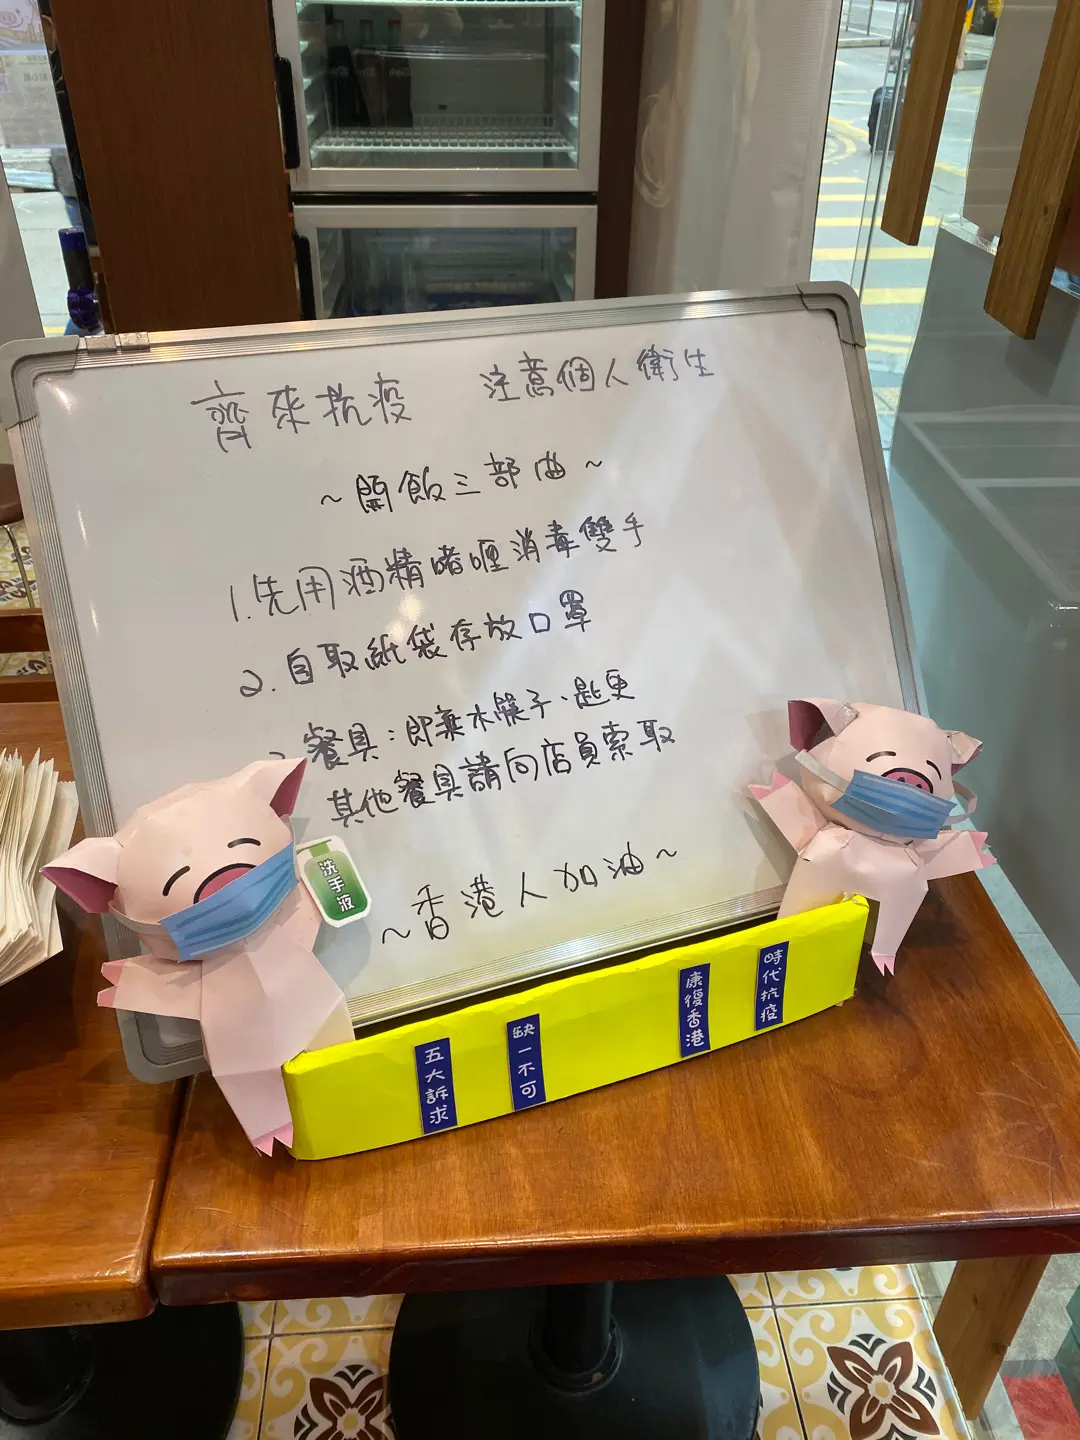 齊來抗疫 注意個人衛生
~開飯三部曲~
1.先用酒精啫喱消毒雙手
2.自取紙袋存放口罩
餐具:即棄木筷子、匙更
其他餐具請向店員索取
~香港人加油~
洗手液
五大訴求
缺一不可
康復香港
時代抗疫